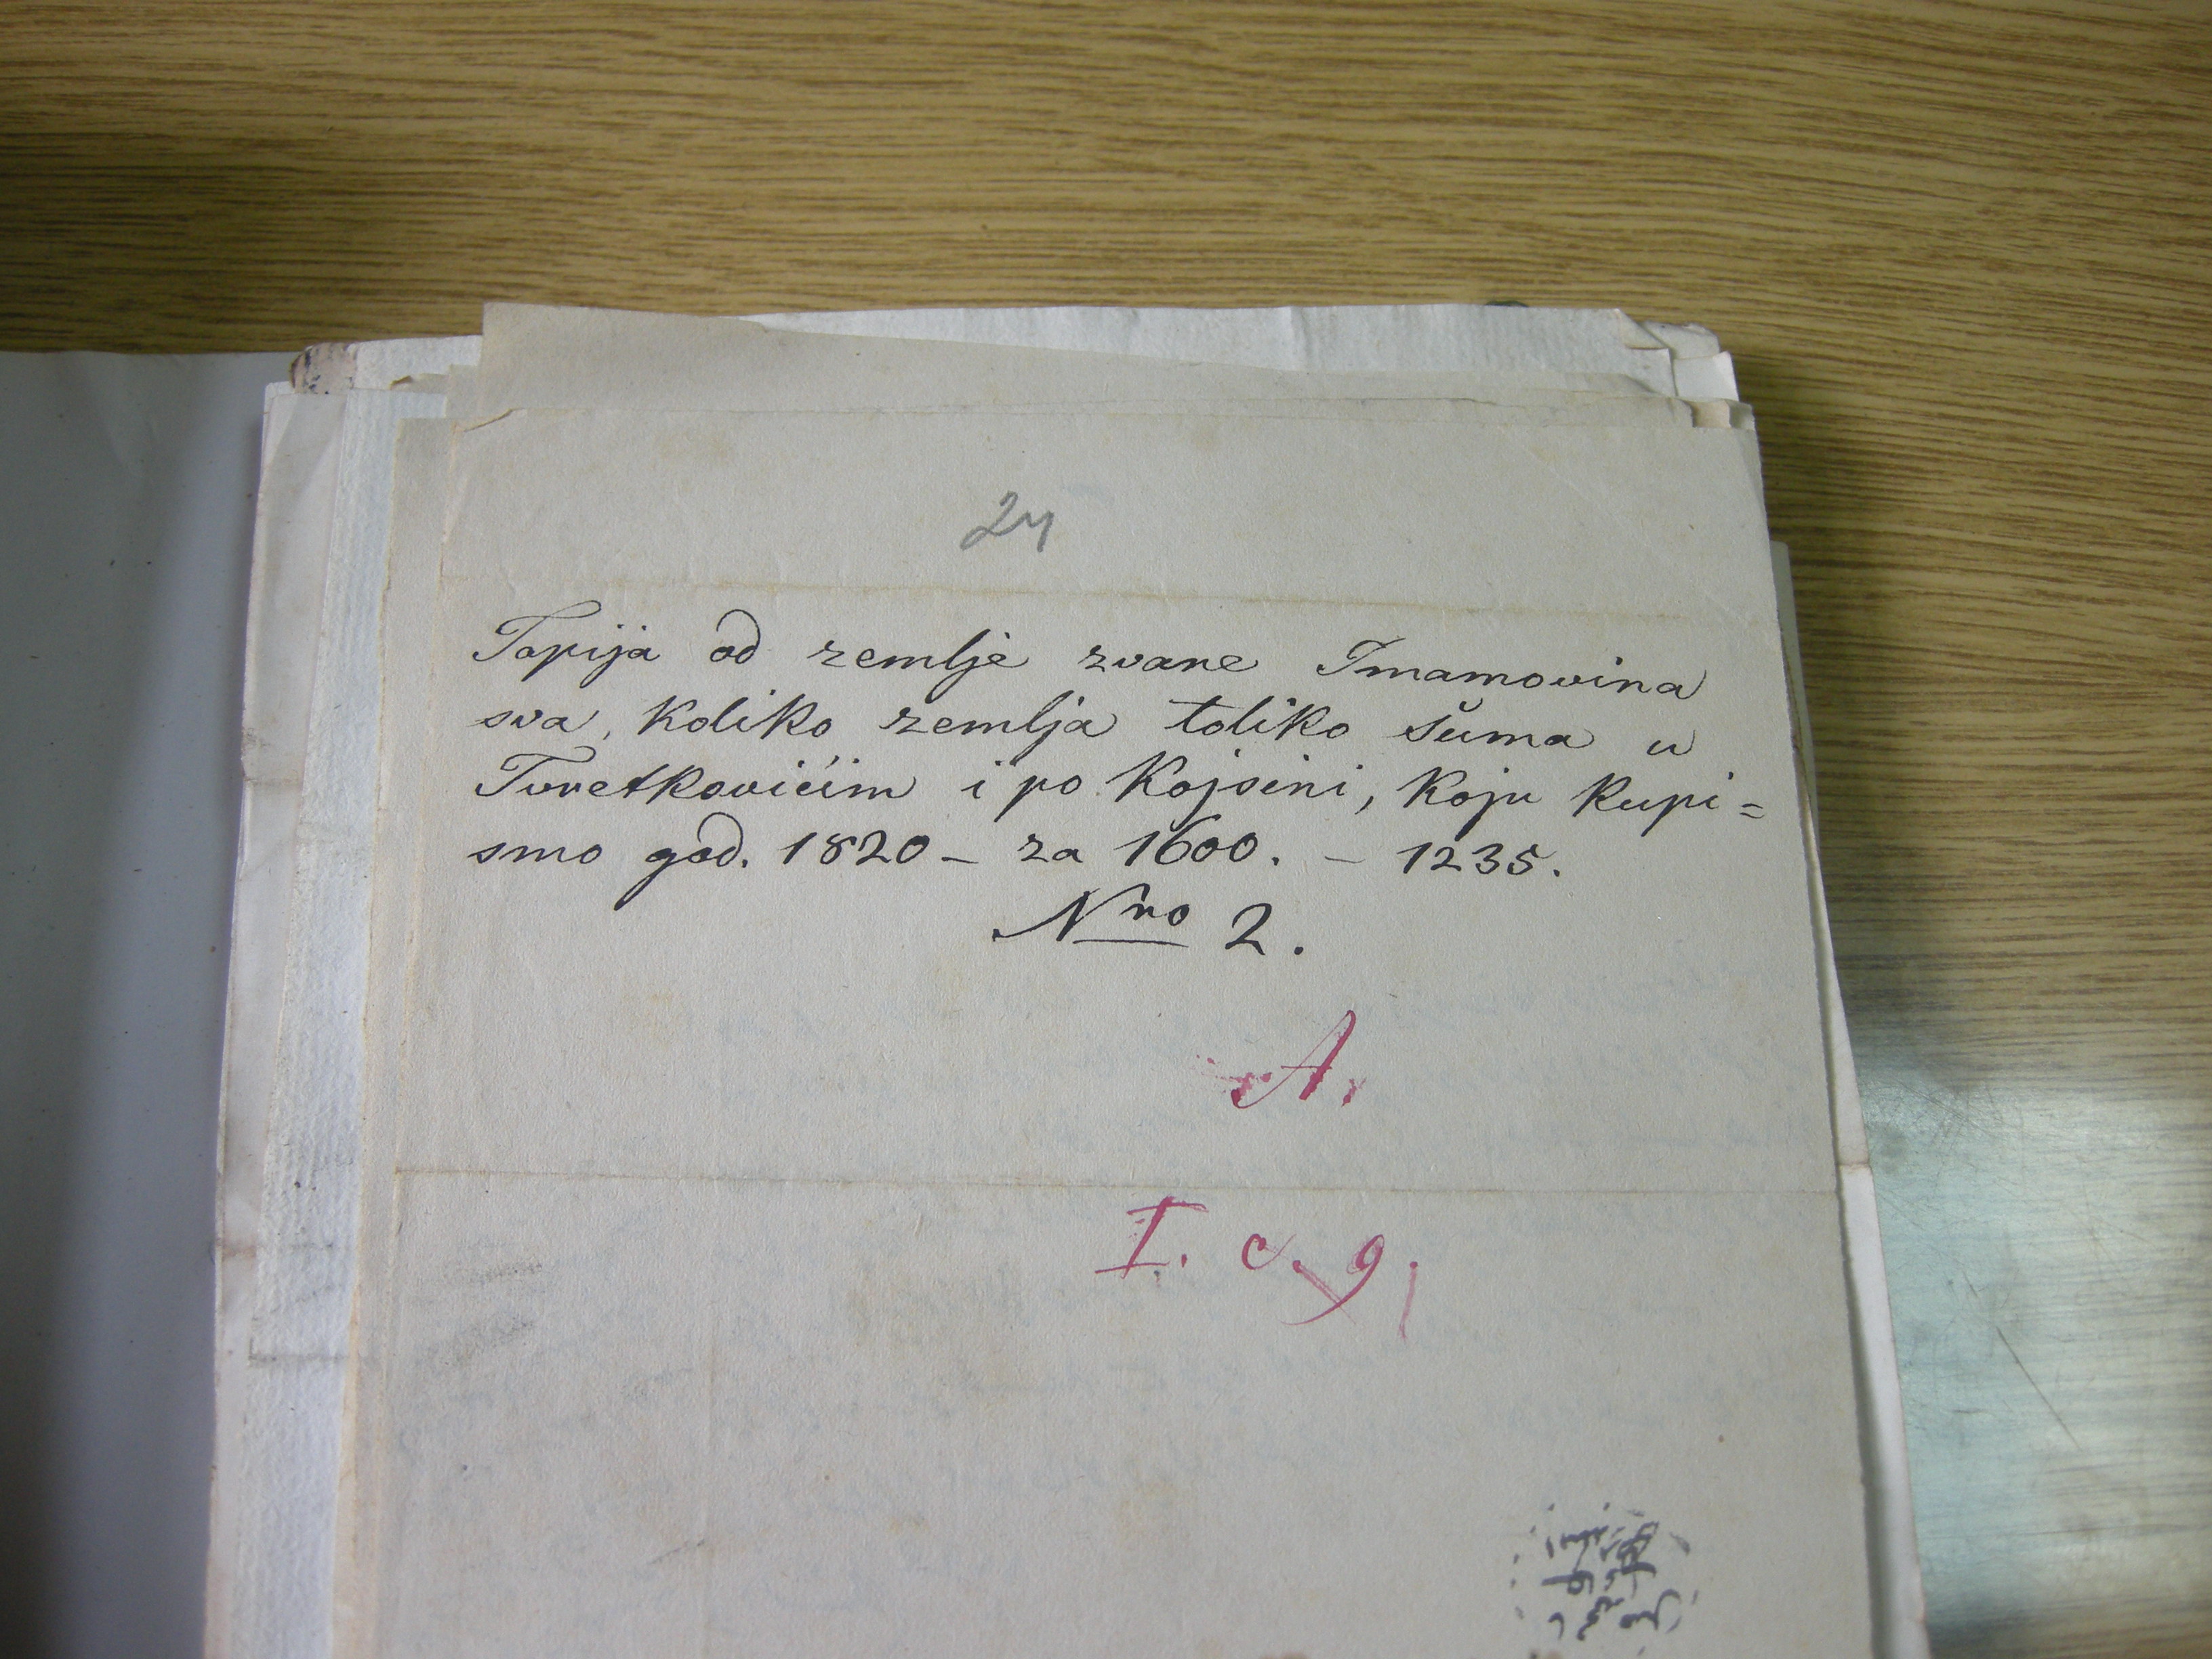 24
Tapija od zemlje zvane Imamovina
sva, koliko zemlja toliko šuma u
Tvretkovićim i po Kojsini, koju kupi=
smo god. 1820 – za 1600. – 1235.
Nro 2.
A.
I. c. 9.